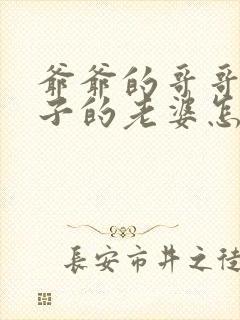 爺爺的哥哥
子的老婆怎
長安市井之徒